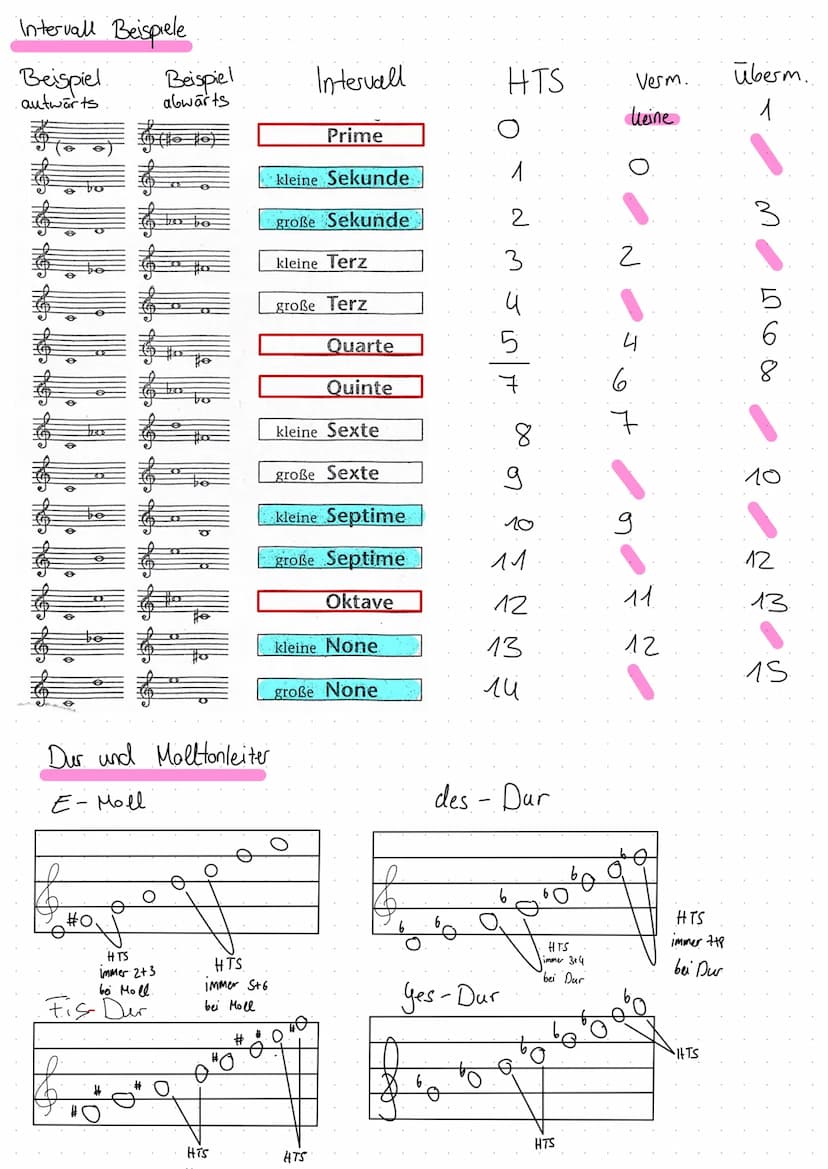 Intervall Beispiele
Beispiel aufwärts Beispiel abwärts Intervall HTS Verm. Überm.
Prime 0 keine 1
kleine Sekunde 1 0
große Sekunde 2 3
kleine Terz 3 2
große Terz 4 5
Quarte 5 4 6
Quinte 7 6 8
kleine Sexte 8 7
große Sexte 9 10
kleine Septime 10 9
große Septime 11 12
Oktave 12 11 13
kleine None 13 12
große None 14 15
Dur und Molltonleiter
E-Moll
HTS
immer 2+3
bei Moll
HTS
immer 5+6
bei Moll
des-Dur
HTS
immer 3+4
bei Dur
HTS
immer 7+8
bei Dur
Fis-Dur
HTS
HTS
Ges-Dur
HTS
HTS